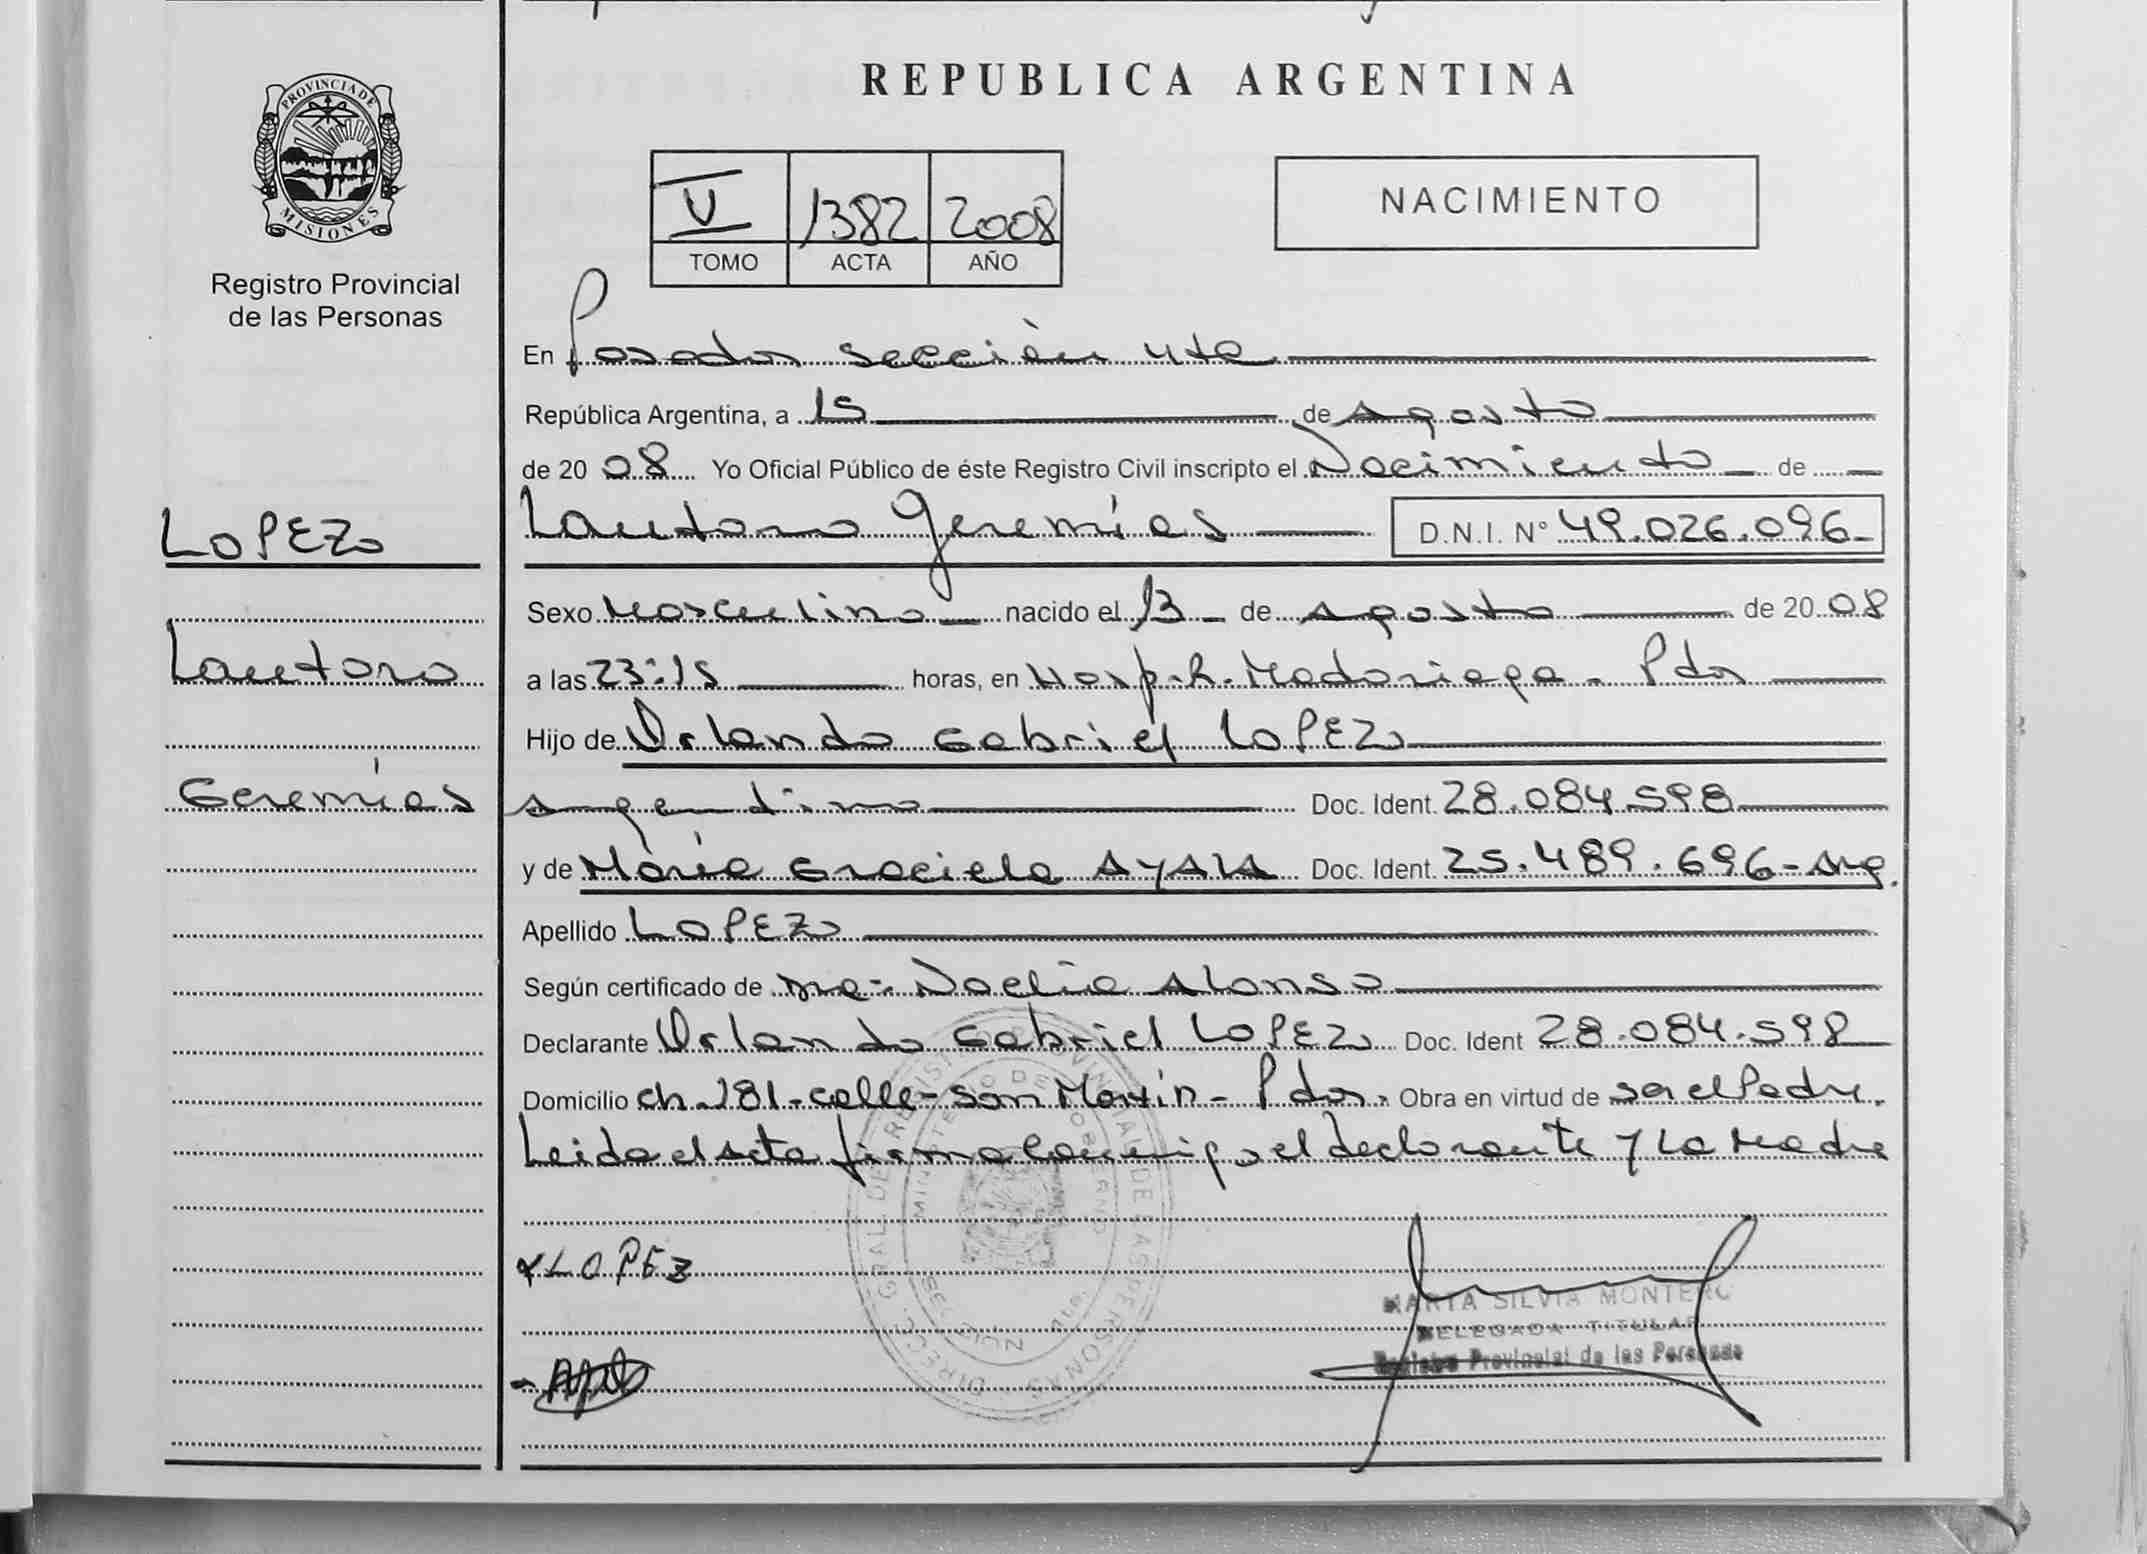 REPUBLICA ARGENTINA
PROVINCIA DE
MISIONES
Registro Provincial
de las Personas
V 1382 2008
TOMO ACTA AÑO
NACIMIENTO
En Posadas sección 4ta
República Argentina, a 15 de Agosto
de 2008 Yo Oficial Público de éste Registro Civil inscripto el Nacimiento de
LOPEZ
Lautaro Geremías D.N.I. N° 49.026.096
Sexo Masculino nacido el 13 de Agosto de 2008
Lautaro
a las 23:15 horas, en Hosp. R. Madariaga - Pdas
Hijo de Orlando Gabriel LOPEZ
Geremías
argentino Doc. Ident. 28.084.598
y de María Graciela AYALA Doc. Ident. 25.489.696-Arg.
Apellido LOPEZ
Según certificado de Noelia Alonso
Declarante Orlando Gabriel LOPEZ Doc. Ident 28.084.598
Domicilio ch. 181-calle-San Martín - Pdas. Obra en virtud de ser el Padre.
Leida el Acta firma conmigo el declarante y La Madre
LOPEZ
DIRECC. GRAL. DE REGISTRO PROVINCIAL DE LAS PERSONAS
MINISTERIO DE GOBIERNO
SECCIÓN 4ta.
MARTA SILVIA MONTERO
DELEGADA TITULAR
Registro Provincial de las Personas